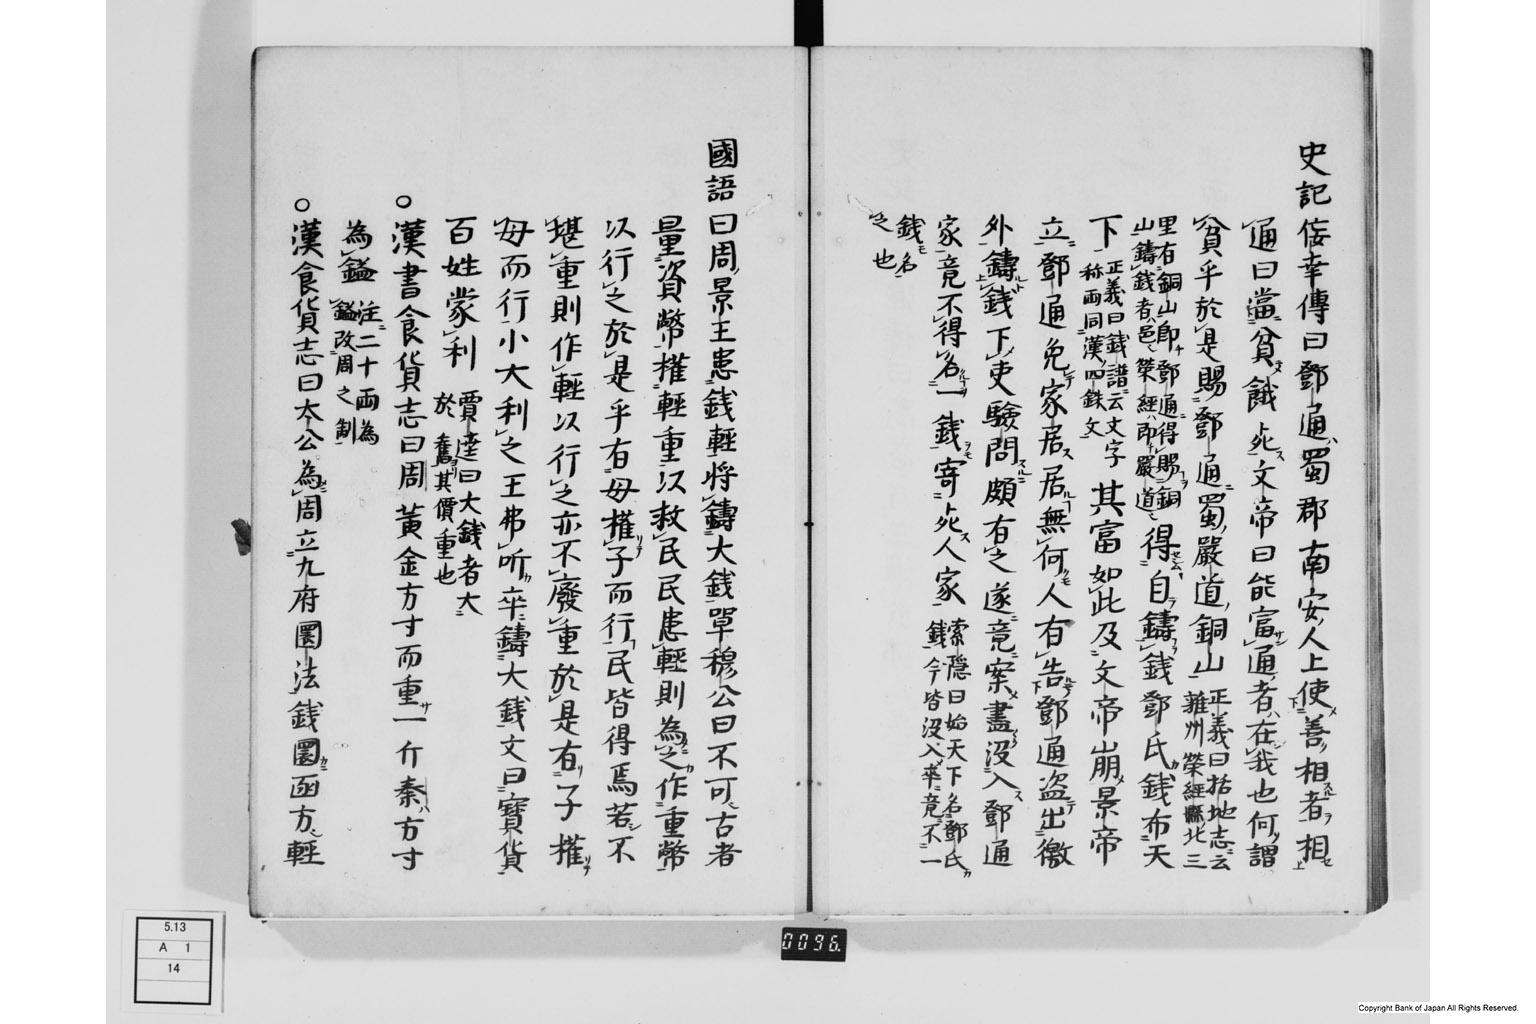 史記佞幸傳曰鄧通蜀郡南安人上使善相者相
通曰當貧餓死文帝曰能富通者在我也何謂
貧乎於是賜鄧通蜀嚴道銅山正義曰括地志云
雅州榮經縣北三
里有銅山即鄧通得賜銅
山鑄錢者邑榮經即嚴道得自鑄錢鄧氏錢布天
下正義曰錢譜云文字
称兩同漢四銖文其富如此及文帝崩景帝
立鄧通免家居居無何人有告鄧通盗出徼
外鑄錢下吏驗問頗有之遂竟案盡没入鄧通
家竟不得名一錢寄死人家索隠曰始天下名鄧氏
錢今皆没入卒竟不一
錢名
之也
國語曰周景王患錢輕将鑄大錢單穆公曰不可古者
量資幣權輕重以救民民患輕則為之作重幣
以行之於是乎有母權子而行民皆得焉若不
堪重則作輕以行之亦不廢重於是有子權
母而行小大利之王弗听卒鑄大錢文曰寳貨
百姓蒙利賈逵曰大錢者大
於舊其價重也
○漢書食貨志曰周黄金方寸而重一斤秦方寸
為鎰注二十両為
鎰改周之制
○漢食貨志曰太公為周立九府圜法錢圜函方輕
5.13
A 1
14
0096
Copyright Bank of Japan All Rights Reserved.